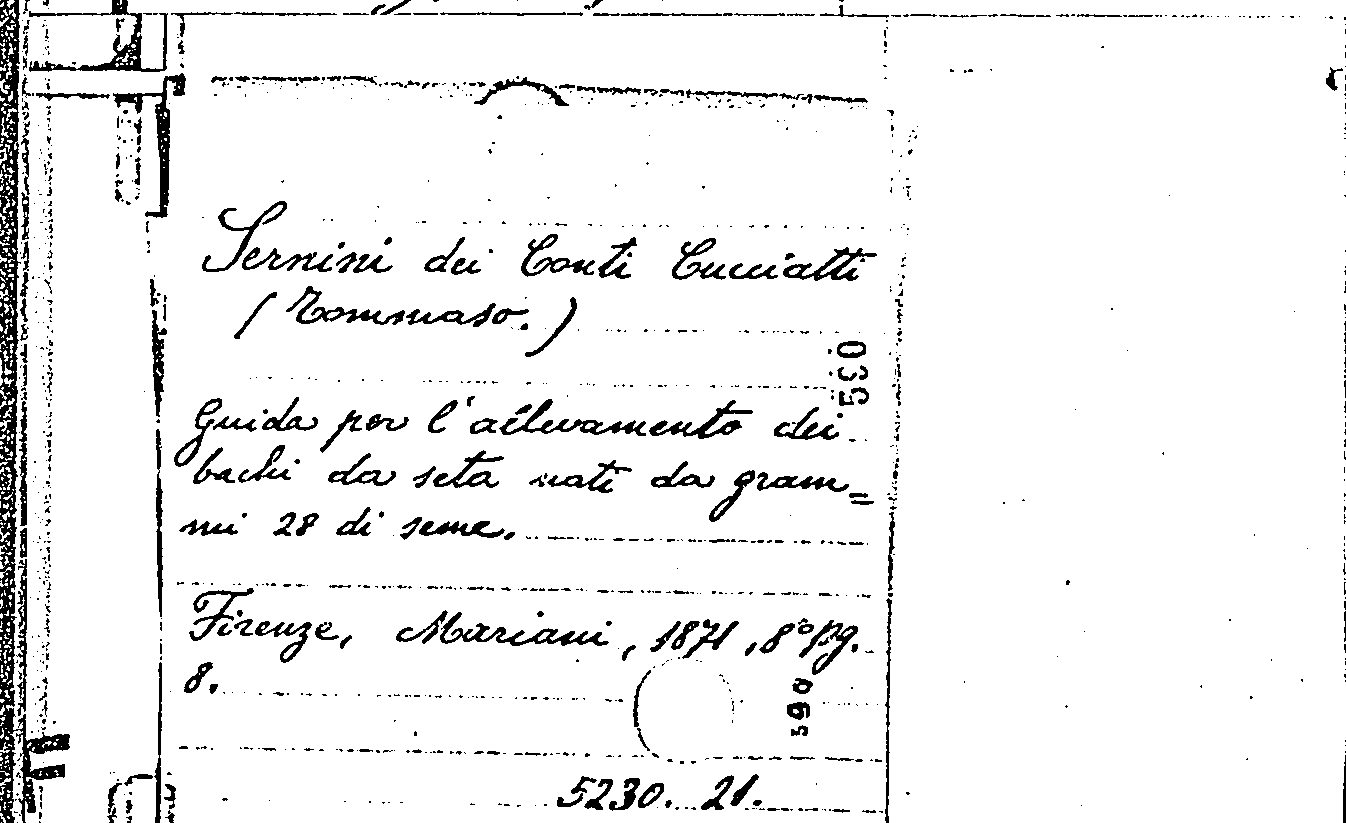 Sernini dei Conti Cucciatti
(Tommaso.)
590
Guida per l'allevamento dei
bachi da seta nati da gram=
mi 28 di seme.
Firenze, Mariani, 1871, 8° pg.
8.
590
5230. 21.